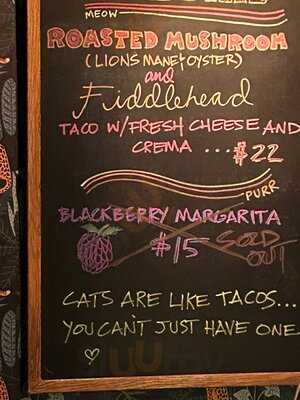 MEOW
ROASTED MUSHROOM
(LIONS MANE+OYSTER)
and
Fiddlehead
TACO W/FRESH CHEESE AND
CREMA ... $22
PURR
BLACKBERRY MARGARITA
$15 SOLD
OUT
CATS ARE LIKE TACOS...
YOU CAN'T JUST HAVE ONE